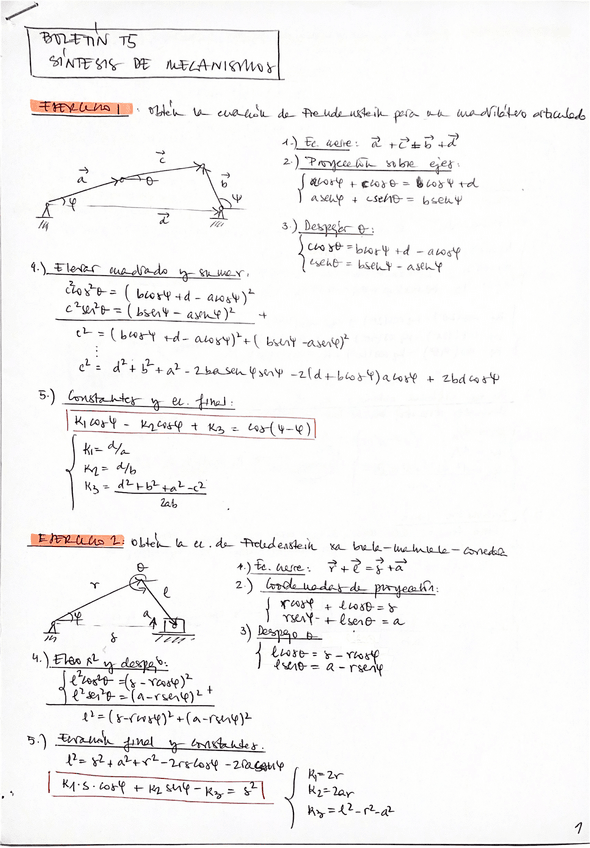 BOLETÍN T5
SÍNTESIS DE MECANISMOS
EJERCICIO 1: obtén la ecuación de Freudenstein para un cuadrilátero articulado
a⃗ c⃗ θ b⃗ φ ψ d⃗
1.) Ec. cierre: a⃗ + c⃗ = b⃗ + d⃗
2.) Proyección sobre ejes:
acosφ + ccosθ = bcosψ + d
asenφ + csenθ = bsenψ
3.) Despejar θ:
ccosθ = bcosψ + d - acosφ
csenθ = bsenψ - asenφ
4.) Elevar cuadrado y sumar:
c²cos²θ = (bcosψ + d - acosφ)²
c²sen²θ = (bsenψ - asenφ)² +
c² = (bcosψ + d - acosφ)² + (bsenψ - asenφ)²
⋮
c² = d² + b² + a² - 2basenφsenψ - 2(d + bcosψ)acosφ + 2bdcosψ
5.) Constantes y ec. final:
K1cosψ - K2cosφ + K3 = cos(ψ-φ)
K1 = d/a
K2 = d/b
K3 = d² + b² + a² - c² / 2ab
EJERCICIO 2: obtén la ec. de Freudenstein xa biela-manivela-corredera
θ r l φ a s
1.) Ec. cierre: r⃗ + l⃗ = s⃗ + a⃗
2.) Coordenadas de proyección:
rcosφ + lcosθ = s
rsenφ + lsenθ = a
3) Despejo θ
lcosθ = s - rcosφ
lsenθ = a - rsenφ
4.) Elevo x² y despejo:
l²cos²θ = (s - rcosφ)²
l²sen²θ = (a - rsenφ)² +
l² = (s-rcosφ)² + (a-rsenφ)²
5.) Ecuación final y constantes:
l² = s² + a² + r² - 2rscosφ - 2rasenφ
K1·s·cosφ + K2senφ - K3 = s²
K1 = 2r
K2 = 2ar
K3 = l² - r² - a²
1